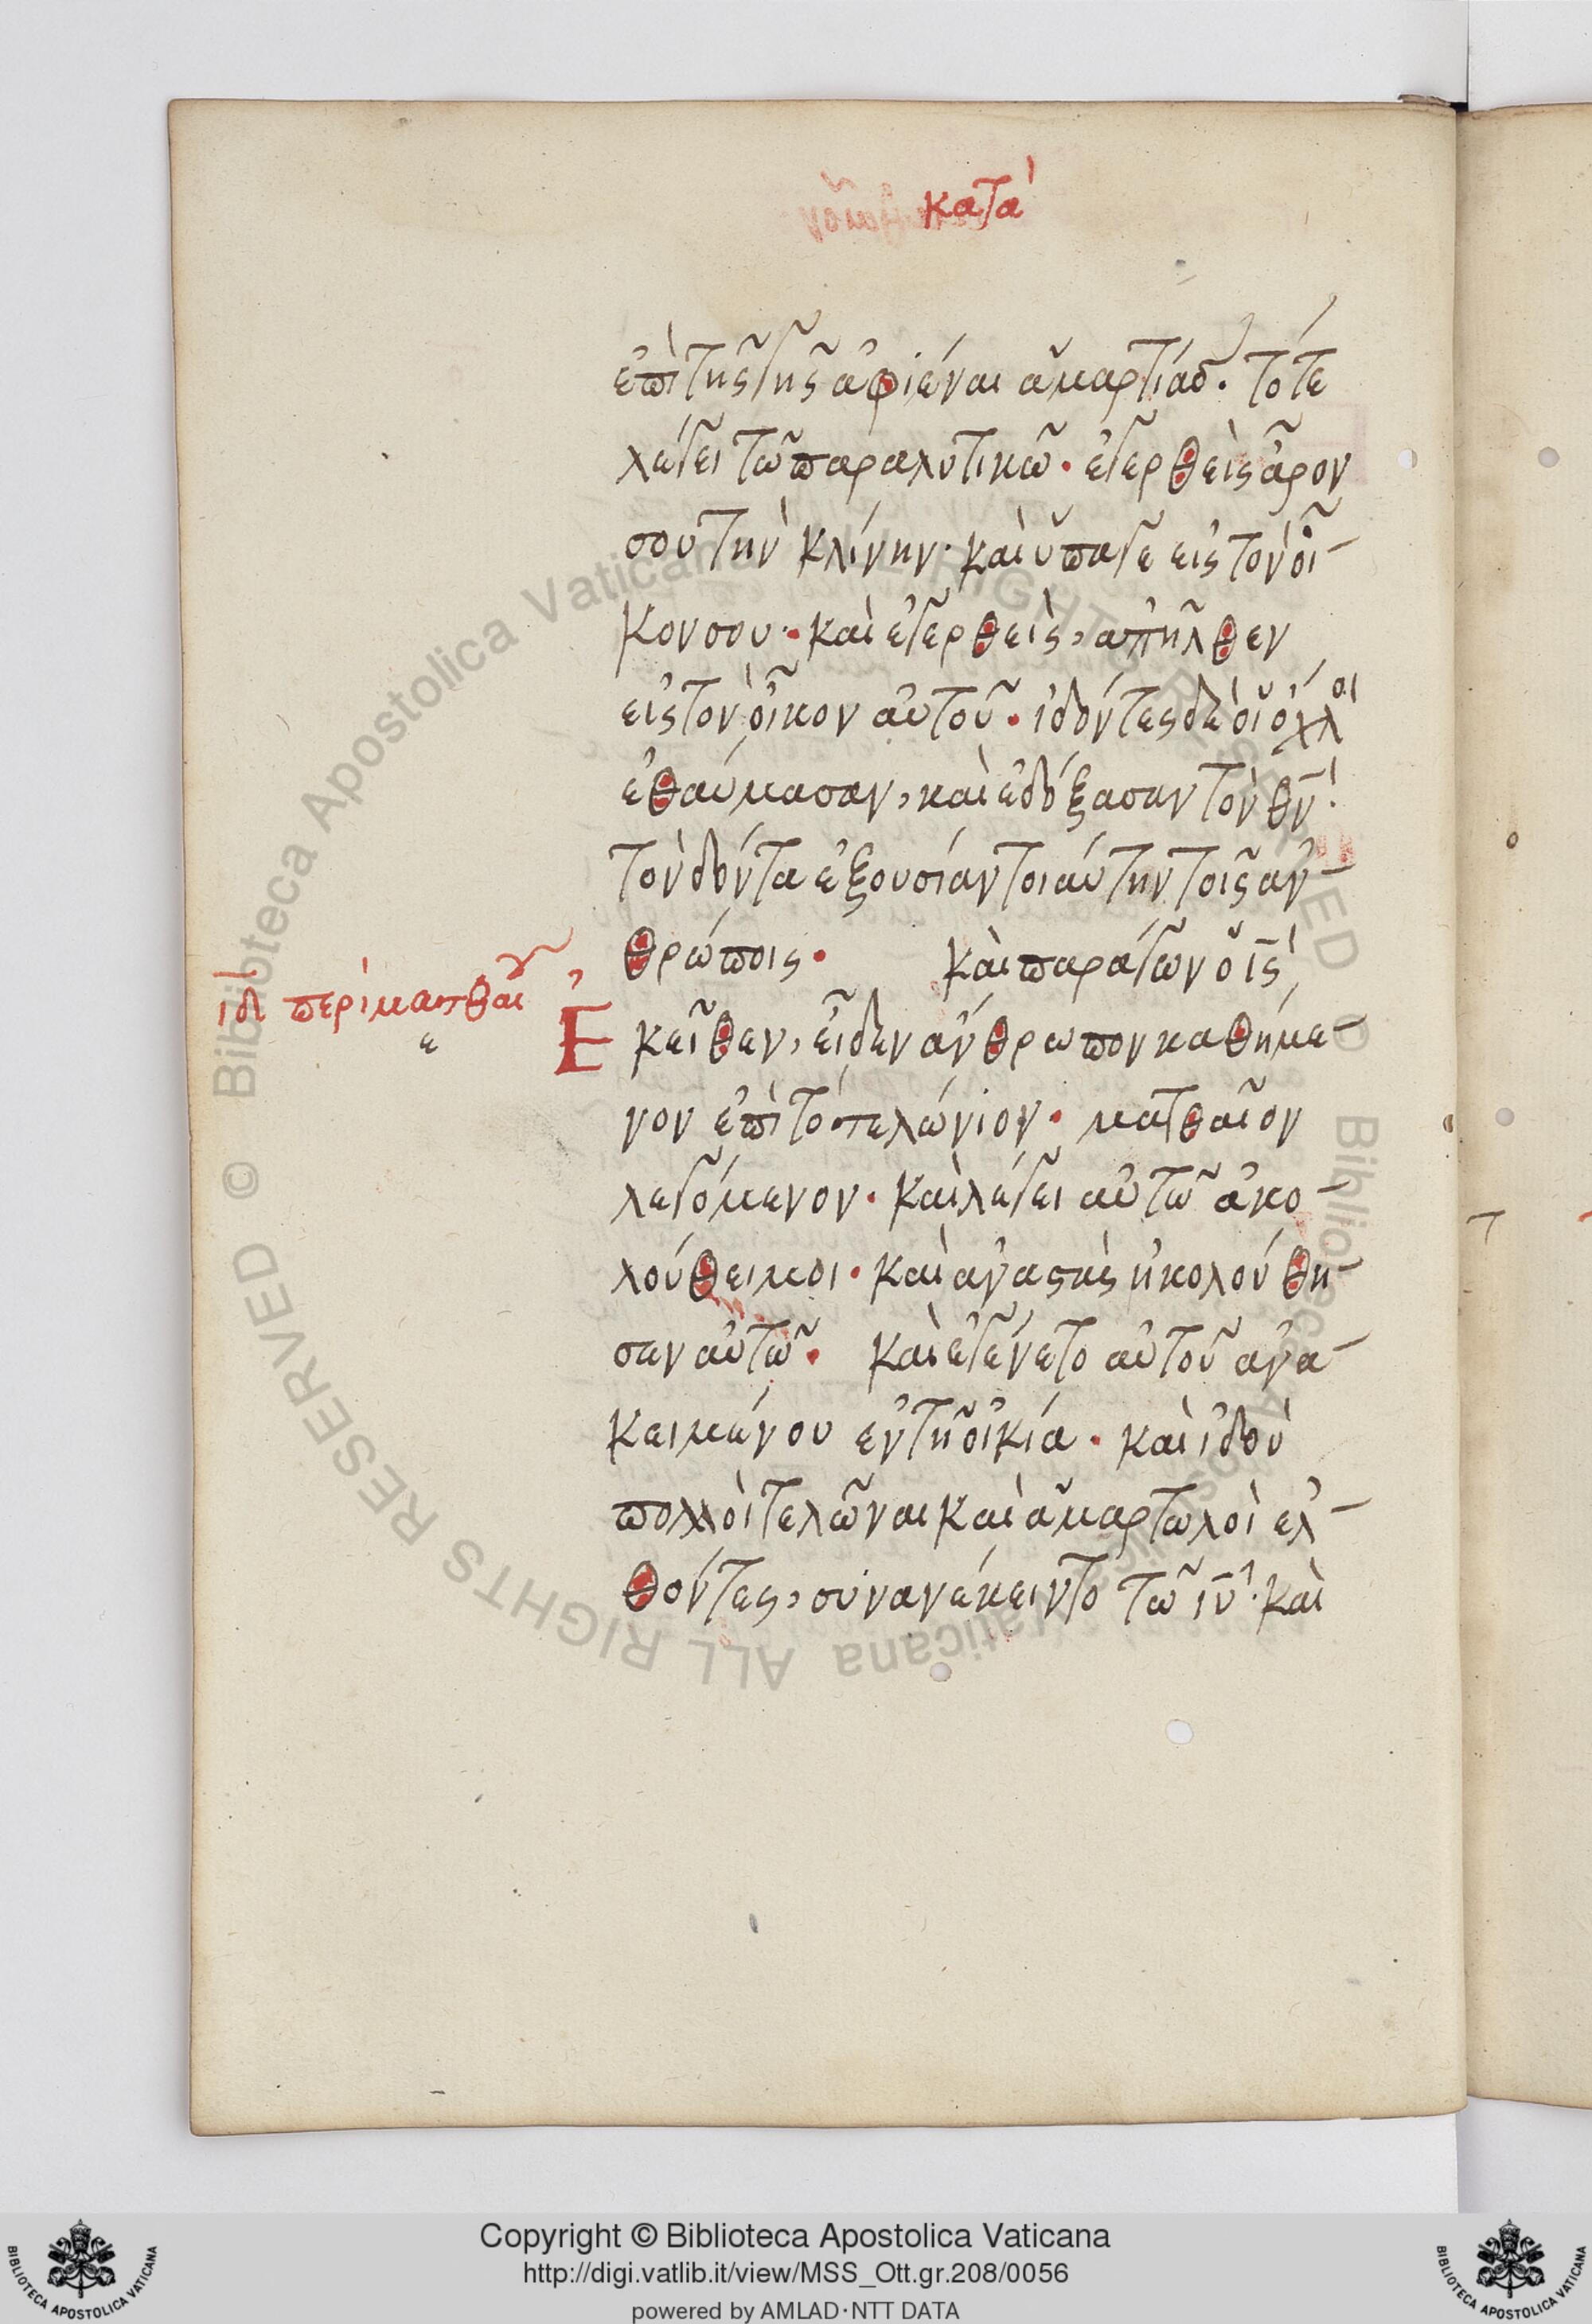 κατὰ
ἐπὶ τῆς γῆς ἀφιέναι ἁμαρτίας. τότε
λέγει τῶ παραλυτικῶ. ἐγερθεὶς ἆρον
σου τὴν κλίνην. καὶ ὕπαγε εἰς τὸν οἶ-
κον σου. καὶ ἐγερθεὶς, ἀπῆλθεν
εἰς τὸν οἶκον αὐτοῦ. ἰδόντες δὲ οἱ ὄχλοι
ἐθαύμασαν, καὶ ἐδόξασαν τὸν θν̄.
τὸν δόντα ἐξουσίαν τοιαύτην τοῖς ἀν-
θρώποις. καὶ παράγων ὁ ις̄
ιδ περὶ ματθαι
ε
Ἐκεῖθεν, εἶδεν ἄνθρωπον καθήμε-
νον ἐπὶ τὸ τελώνιον. ματθαῖον
λεγόμενον. καὶ λέγει αὐτῶ ἀκο-
λούθει μοι. καὶ ἀναστὰς ἠκολούθη-
σεν αὐτῶ. καὶ ἐγένετο αὐτοῦ ἀνα-
κειμένου ἐν τῆ οἰκία. καὶ ἰδοὺ
πολλοὶ τελῶναι καὶ ἁμαρτωλοὶ ἐλ-
θόντες, συνανέκειντο τῶ ιῡ. καὶ
Copyright © Biblioteca Apostolica Vaticana
http://digi.vatlib.it/view/MSS_Ott.gr.208/0056
powered by AMLAD·NTT DATA
BIBLIOTECA APOSTOLICA VATICANA
BIBLIOTECA APOSTOLICA VATICANA
© Biblioteca Apostolica Vaticana ALL RIGHTS RESERVED © Biblioteca Apostolica Vaticana ALL RIGHTS RESERVED